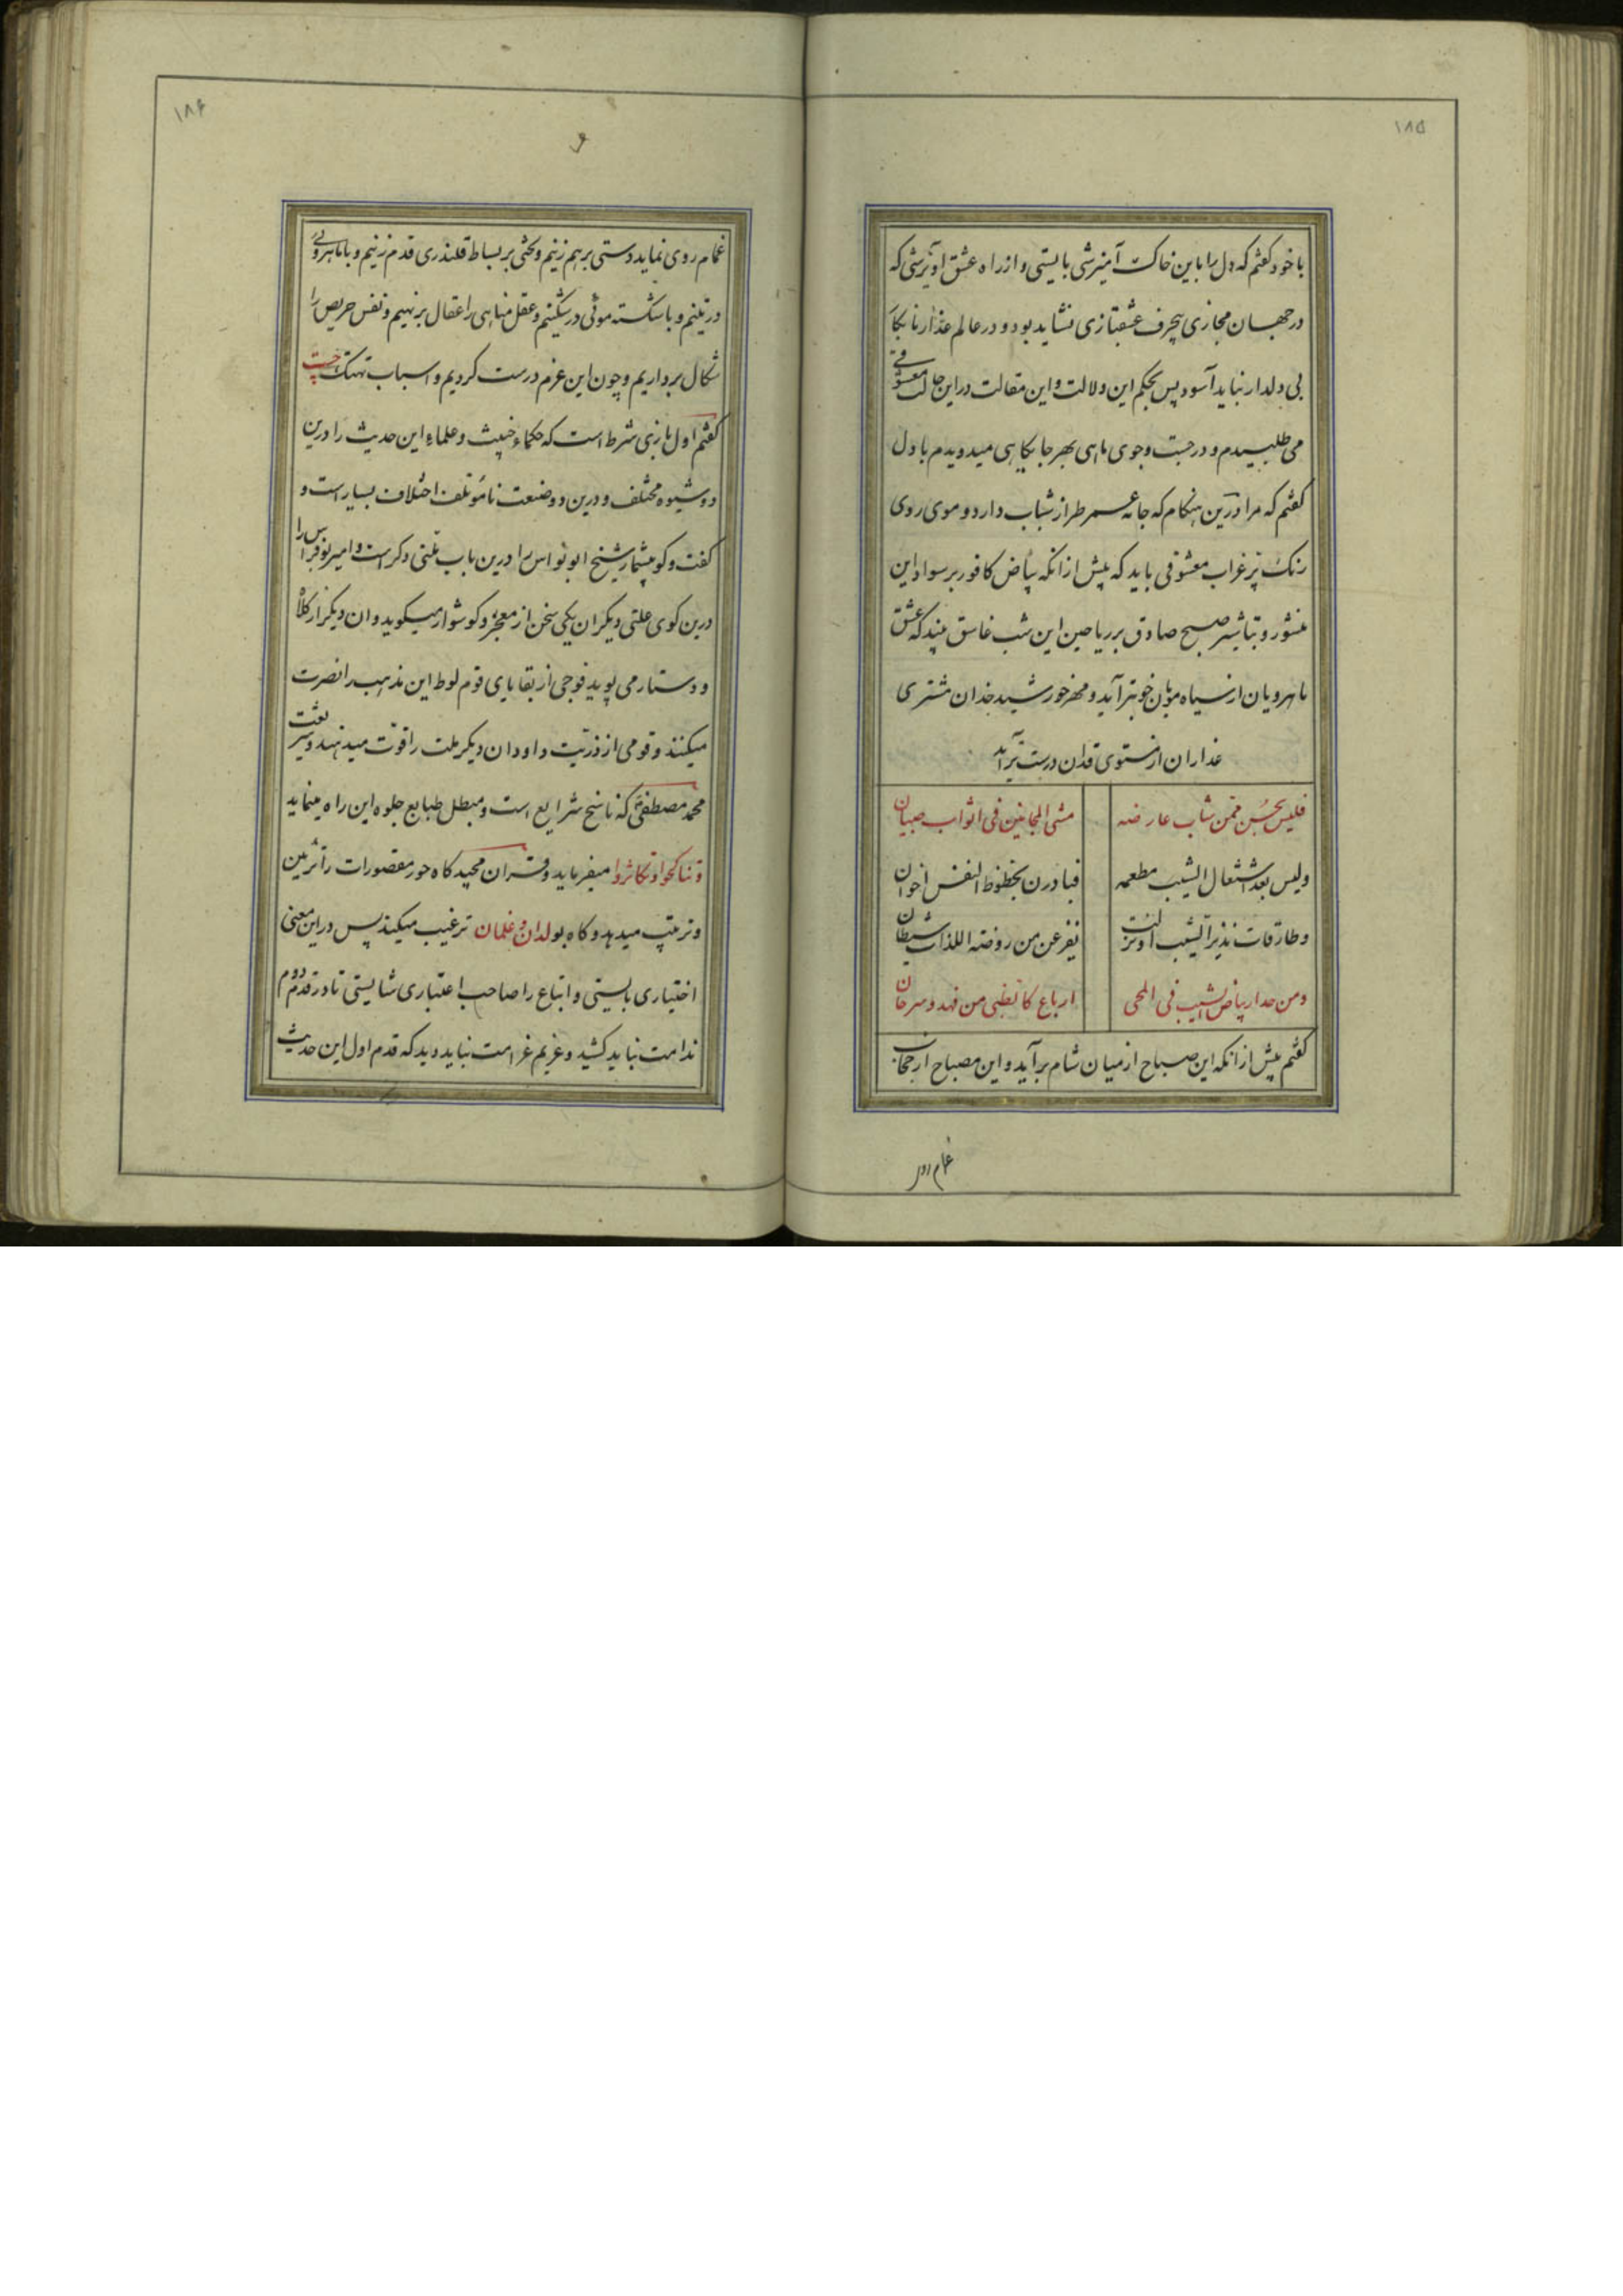 ۱۸۵
با خود گفتم که دل را با این خاک آمیزشی بایستی و از راه عشق آویزشی که
در جهان مجازی بیحرف عشقبازی نشاید بود و در عالم غدار نابکار
بی دلدار نباید آسود پس بحکم این دلالت و این مقالت در این حالت معشوقی
می طلبیدم و در جست وجوی ماهی بهر جایگاهی میدویدم با دل
گفتم که مرا درین هنگام که جامه عمر طراز شباب دارد و موی روی
رنک پر غراب معشوقی باید که پیش از انکه بیاض کافور بر سواد این
منشور و تباشیر صبح صادق بر ریاحین این شب غاسق بیند که عشق
ماهرویان از سیاه مویان خوبتر آید و مهر خورشید خدان مشتری
عذاران از مستوی قدان درست تر آید
فلیس یحسن ممن شاب عارضه
مشی المجانین فی اثواب صبیان
ولیس بعد اشتعال الشیب مطعمه
فبادرن بحظوظ النفس اخوان
وطارقات نذیر الشیب اونت
نفرعن من روضة اللذات شیطان
ومن حدار بیاض الشیب فی اللحی
ارباع کالظبی من فهد وسرحان
گفتم پیش از انکه این صباح از میان شام برآید و این مصباح از حجاب
غمام روی
۱۸۶
غمام روی نماید دستی بر هم زنیم و بختی بر بساط قلندری قدم زنیم و با ماهروئی
در تنیم و با شکسته موئی در شکنیم و عقل مناهی را عقال بر نهیم و نفس حریص را
شکال برداریم و چون این عزم درست کردیم و اسباب تهتک چست
گفتم اول بازی شرط است که حکماء خبیث و علماء این حدیث را درین
دو شیوه مختلف و درین دو صنعت نامؤتلف اختلاف بسیار است و
گفت و گو بیشمار شیخ ابو نواس را درین باب ملتی دگر است و امیر بوفراس را
درین کوی علتی دیگران یکی سخن از معجر و گوشوار میگوید و ان دیگر از کلاه
و دستار می پوید فوجی از بقایای قوم لوط این مذهب را نصرت
میکنند و قومی از ذریت داود ان دیگر ملت را قوت میدهند و سر بعثت
محمد مصطفی که ناسخ شرایع است و مبطل طبایع جلوه این راه مینماید
و تناکحوا و تکاثروا میفرماید و قران مجید گاه حور مقصورات را تزئین
و ترتیب میدهد و گاه بولدان و غلمان ترغیب میکند پس در این معنی
اختیاری بایستی و اتباع را صاحب اعتباری شایستی تا در قدم دوم
ندامت نباید کشید و غریم غرامت نباید دید که قدم اول این حدیث